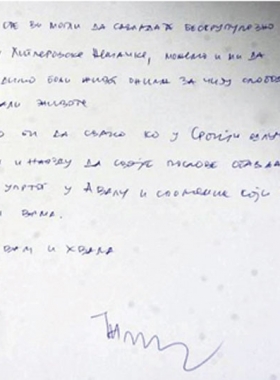 сте ви могли да савладате бескрупулозно
Хитлеровске Немачке, можемо и ми да
дило бољи живот онима за чију слободу
али животе.
о би да свако ко у Србији
и намеру да своје послове
упрт у Авалу и споменик који
вама.
вам и хвала